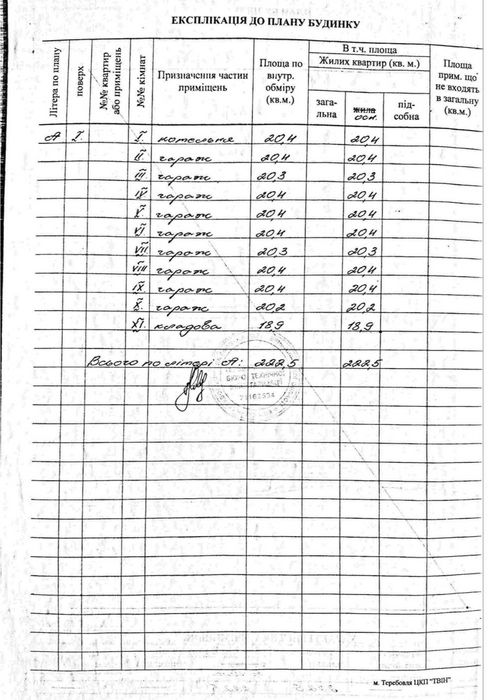 ЕКСПЛІКАЦІЯ ДО ПЛАНУ БУДИНКУ
Літера по плану
поверх
№№ квартир або приміщень
№№ кімнат
Призначення частин приміщень
Площа по внутр. обміру (кв.м.)
В т.ч. площа
Жилих квартир (кв. м.)
загальна
жила осн.
підсобна
Площа прим. що не входять в загальну (кв.м.)
А I. I. котельня 20,4 20,4
II гараж 20,4 20,4
III гараж 20,3 20,3
IV гараж 20,4 20,4
V гараж 20,4 20,4
VI гараж 20,4 20,4
VII гараж 20,3 20,3
VIII гараж 20,4 20,4
IX гараж 20,4 20,4
X. гараж 20,2 20,2
XI. кладова 18,9 18,9
Всього по літері А: 222,5 222,5
БЮРО ТЕХНІЧНОЇ
м. Теребовля ЦКП "ТВІН"